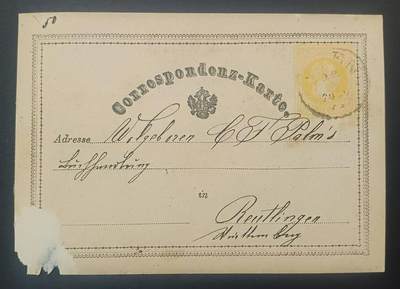 50
Correspondenz-Karte.
Adresse C F Palm's
Buchhandlung
in
Reutlingen
Württemberg